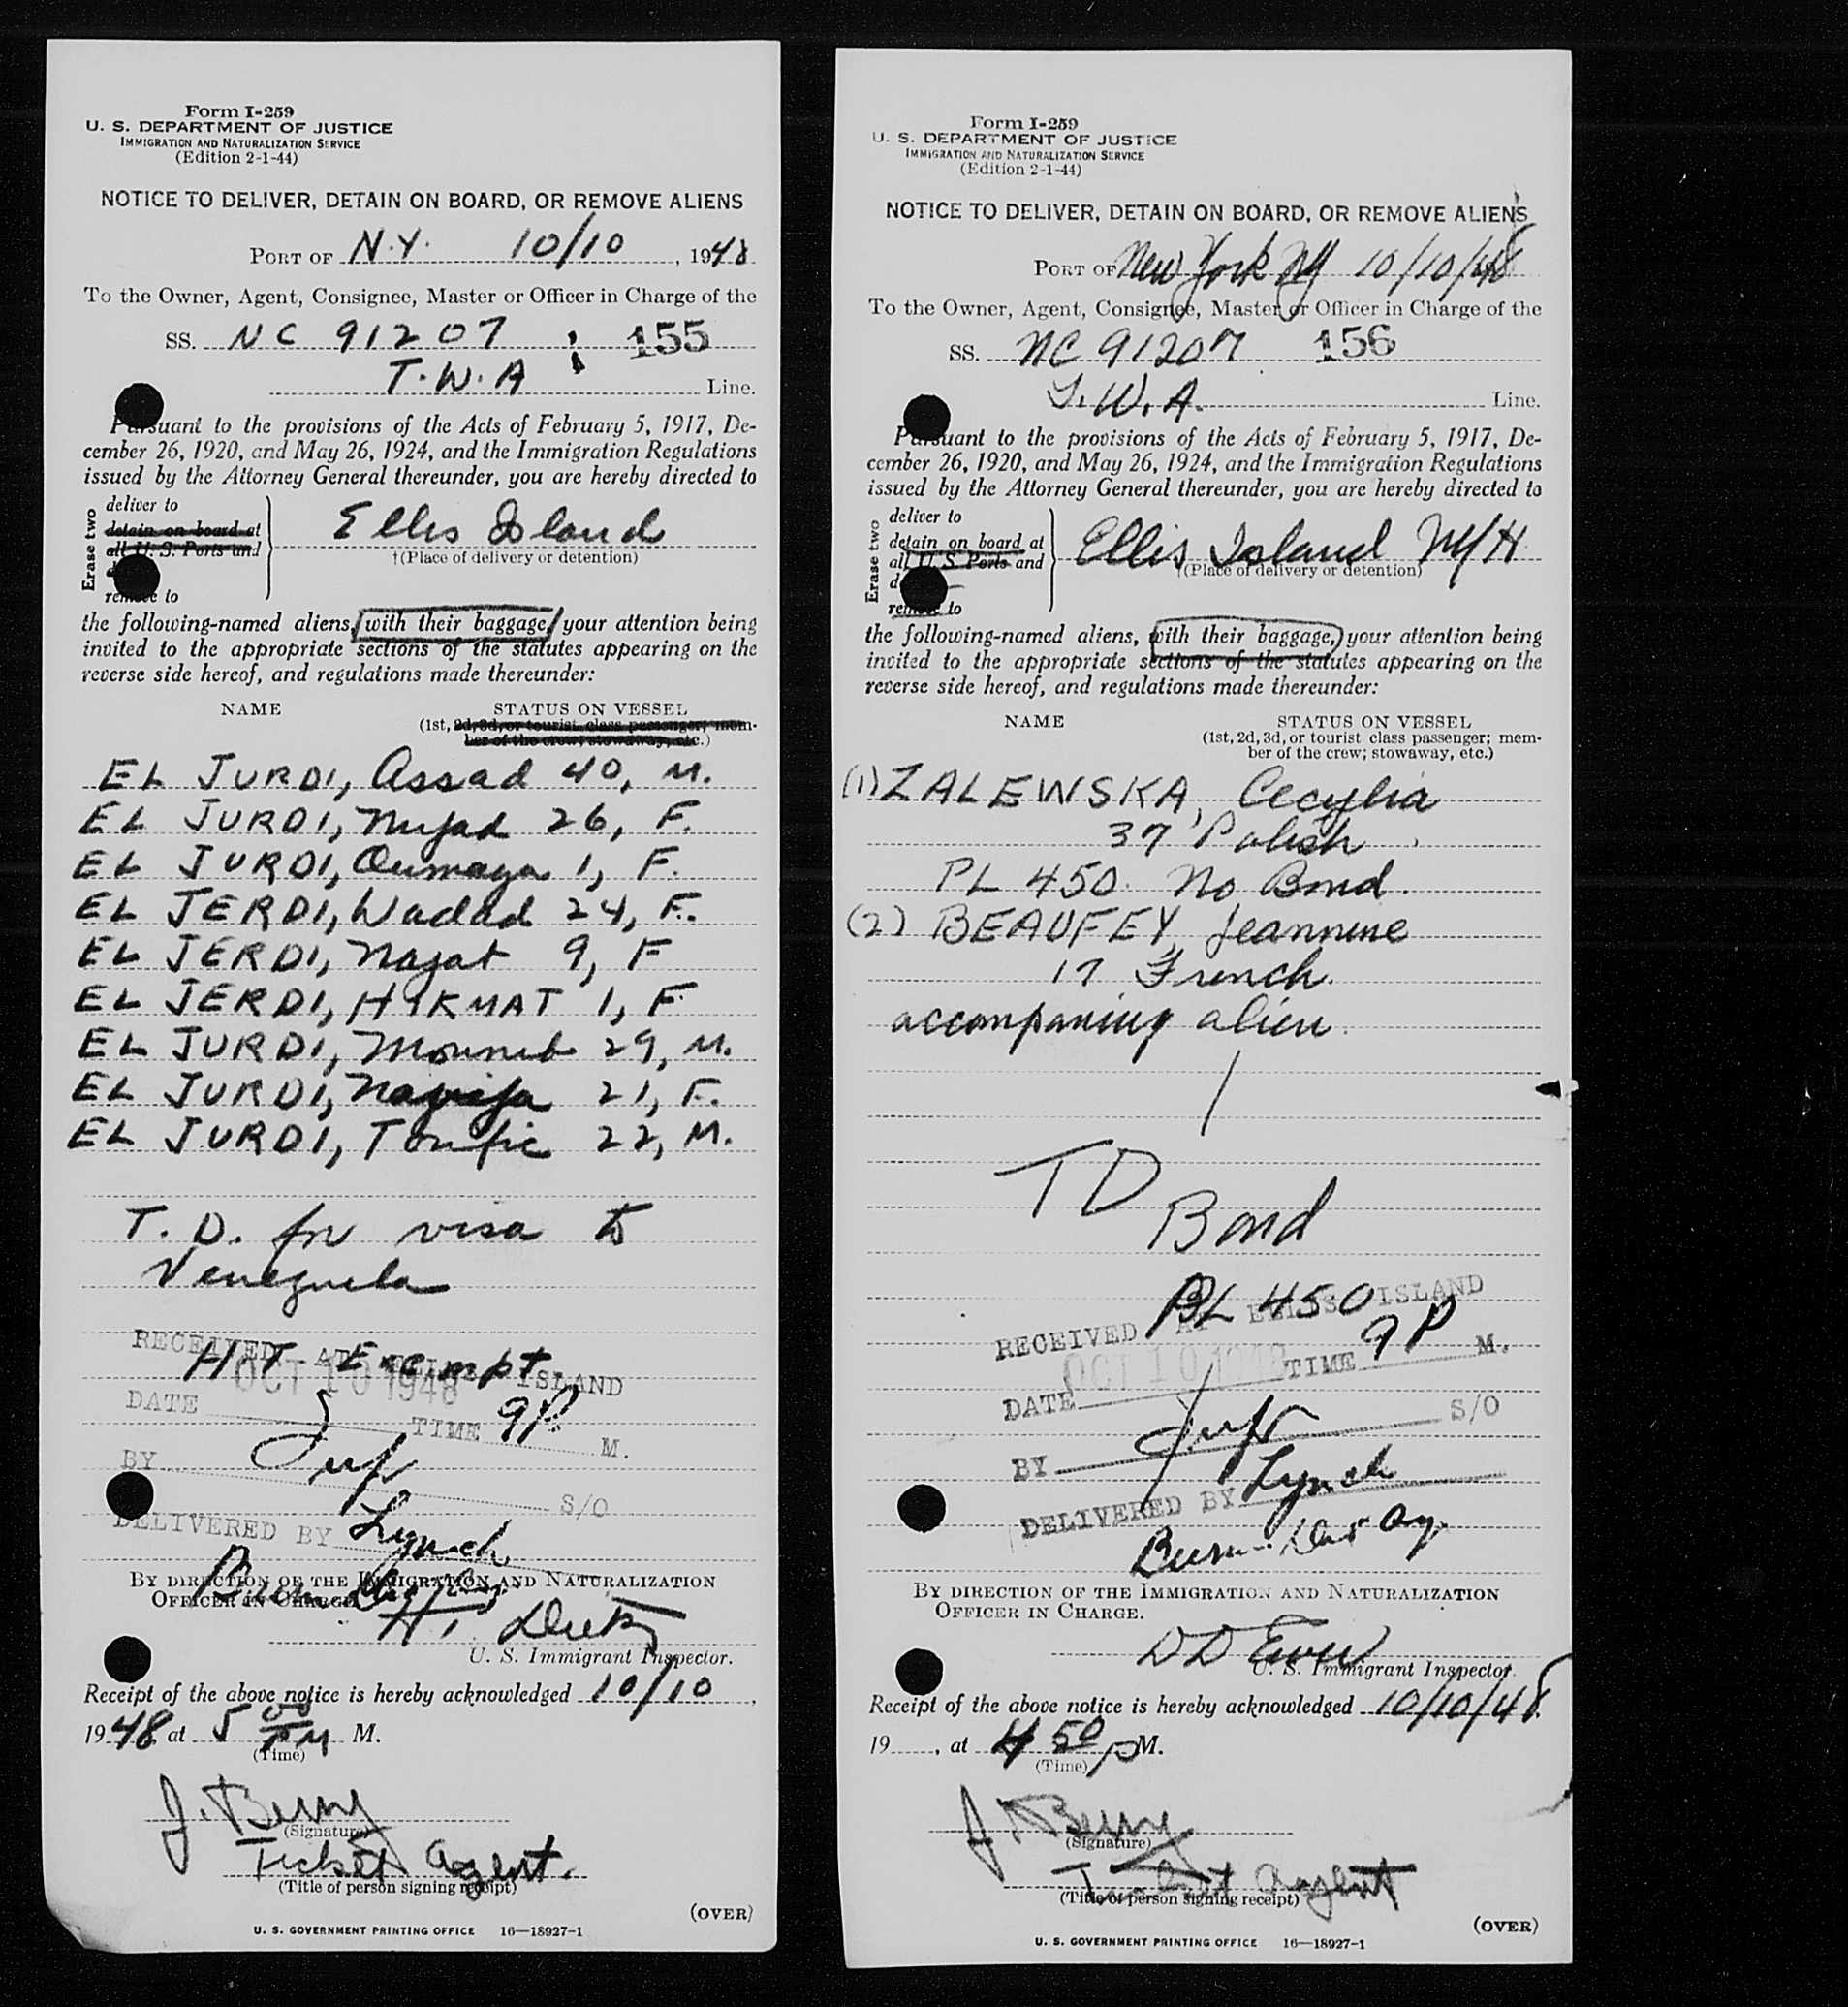 Form I-259
U. S. DEPARTMENT OF JUSTICE
IMMIGRATION AND NATURALIZATION SERVICE
(Edition 2-1-44)
NOTICE TO DELIVER, DETAIN ON BOARD, OR REMOVE ALIENS
PORT OF N.Y. 10/10, 1948
To the Owner, Agent, Consignee, Master or Officer in Charge of the
SS. NC 91207 155
T.W.A Line.
Pursuant to the provisions of the Acts of February 5, 1917, De-
cember 26, 1920, and May 26, 1924, and the Immigration Regulations
issued by the Attorney General thereunder, you are hereby directed to
Erase two
deliver to
detain on board at
all U. S. Ports and
remove to
Ellis Island
†(Place of delivery or detention)
the following-named aliens, with their baggage, your attention being
invited to the appropriate sections of the statutes appearing on the
reverse side hereof, and regulations made thereunder:
NAME STATUS ON VESSEL
(1st, 2d, 3d, or tourist class passenger; mem-
ber of the crew; stowaway, etc.)
EL JURDI, Assad 40, M.
EL JURDI, Nujad 26, F.
EL JURDI, Oumaya 1, F.
EL JERDI, Wadad 24, F.
EL JERDI, Najat 9, F
EL JERDI, HIKMAT 1, F.
EL JURDI, 29, M.
EL JURDI, 21, F.
EL JURDI, Toufic 22, M.
T. D. for visa to
Venezuela
HT Exempt
RECEIVED AT ELLIS ISLAND
OCT 10 1948
DATE TIME 9P M.
BY S/O
DELIVERED BY Lynch
BY DIRECTION OF THE IMMIGRATION AND NATURALIZATION
OFFICER IN CHARGE.
H.
U. S. Immigrant Inspector.
Receipt of the above notice is hereby acknowledged 10/10,
1948 at 5 00 PM M.
(Time)
J. Berry
(Signature)
Ticket Agent.
(Title of person signing receipt)
(OVER)
U. S. GOVERNMENT PRINTING OFFICE 16—18927-1
Form I-259
U. S. DEPARTMENT OF JUSTICE
IMMIGRATION AND NATURALIZATION SERVICE
(Edition 2-1-44)
NOTICE TO DELIVER, DETAIN ON BOARD, OR REMOVE ALIENS
PORT OF New York NY 10/10/48
To the Owner, Agent, Consignee, Master or Officer in Charge of the
SS. NC 91207 156
T.W.A. Line.
Pursuant to the provisions of the Acts of February 5, 1917, De-
cember 26, 1920, and May 26, 1924, and the Immigration Regulations
issued by the Attorney General thereunder, you are hereby directed to
Erase two
deliver to
detain on board at
all U. S. Ports and
remove to
Ellis Island NY H
†(Place of delivery or detention)
the following-named aliens, with their baggage, your attention being
invited to the appropriate sections of the statutes appearing on the
reverse side hereof, and regulations made thereunder:
NAME STATUS ON VESSEL
(1st, 2d, 3d, or tourist class passenger; mem-
ber of the crew; stowaway, etc.)
(1) ZALEWSKA, Cecylia
37 Polish
PL 450. No Bond.
(2) BEAUFEY, Jeannine
17 French.
accompaning alien.
TD
Bond
PL 450
RECEIVED AT ELLIS ISLAND
OCT 10 1948 TIME 9P M.
DATE
BY S/O
DELIVERED BY Lynch
BY DIRECTION OF THE IMMIGRATION AND NATURALIZATION
OFFICER IN CHARGE.
D D
U. S. Immigrant Inspector.
Receipt of the above notice is hereby acknowledged 10/10/48
19 , at 4 50 P M.
(Time)
J. Berry
(Signature)
Ticket Agent
(Title of person signing receipt)
(OVER)
U. S. GOVERNMENT PRINTING OFFICE 16—18927-1